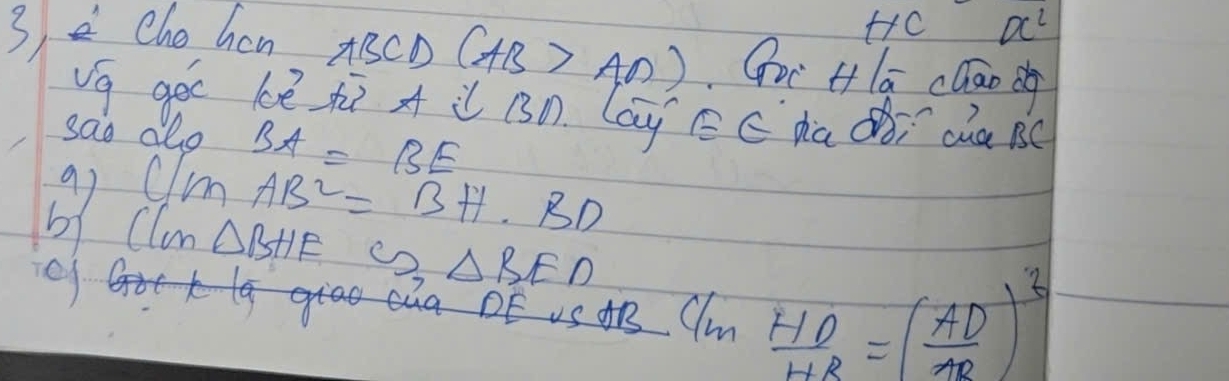 HC x²
3, Cho hcn ABCD (AB > AD). Gọi H là chân đg
vg góc kẻ từ A ⊥ BD. Lấy E ∈ tia đối của BC
sao cho BA = BE
a) C/m AB² = BH . BD
b) C/m △BHE ∽ △BED
c) Gọi K là giao của DE vs AB. C/m HD/HB = (AD/AB)²